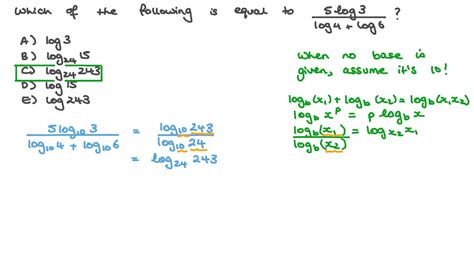 Which of the following is equal to 5 log 3 / log 4 + log 6 ?
A) log 3
B) log₂₄ 15
C) log₂₄ 243
D) log 15
E) log 243
When no base is
given, assume it's 10!
log_b(x₁) + log_b(x₂) = log_b(x₁x₂)
log_b x^p = p log_b x
log_b(x₁) / log_b(x₂) = log_x₂ x₁
5 log₁₀ 3 / log₁₀ 4 + log₁₀ 6 = log₁₀ 243 / log₁₀ 24
= log₂₄ 243